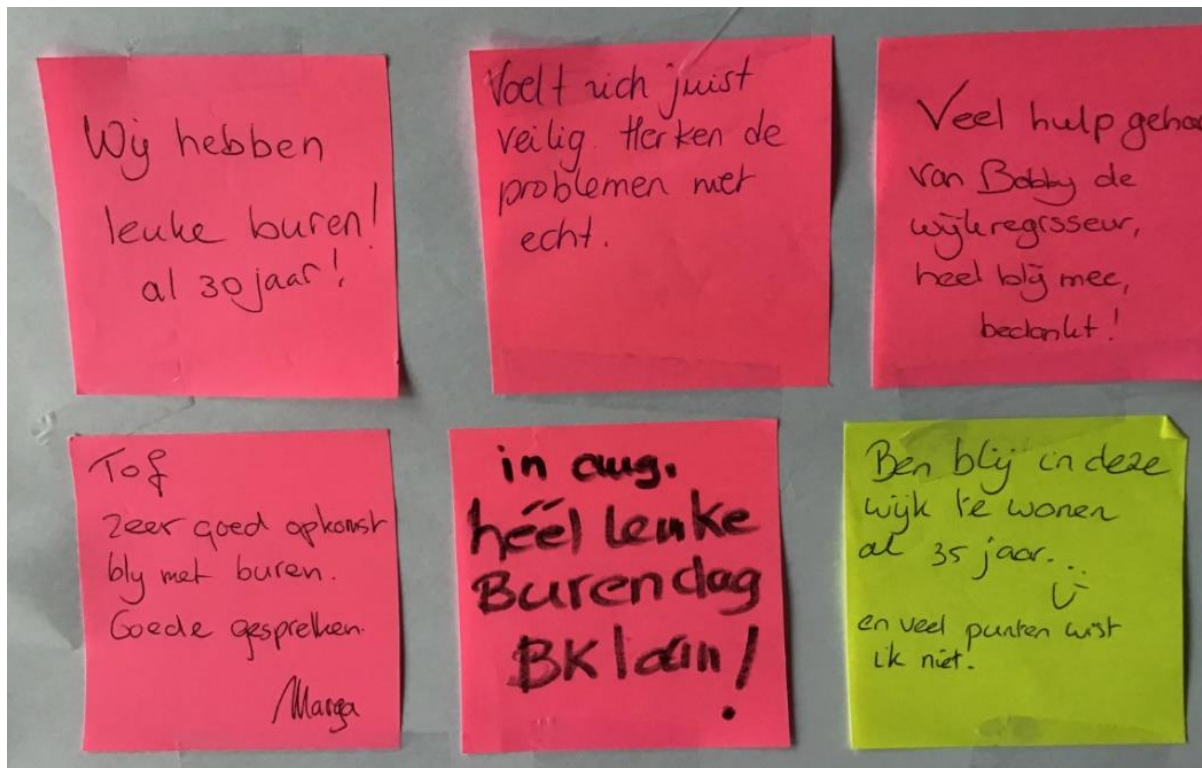 Wij hebben
leuke buren!
al 30 jaar!
Voelt zich juist
veilig. Herken de
problemen niet
echt.
Veel hulp gehad
van Bobby de
wijkregisseur,
heel blij mee,
bedankt!
Tof
Zeer goed opkomst
bly met buren.
Goede gesprekken.
Marga
in aug.
héél leuke
Burendag
BK laan!
Ben blij in deze
wijk te wonen
al 35 jaar...
en veel punten wist
ik niet.